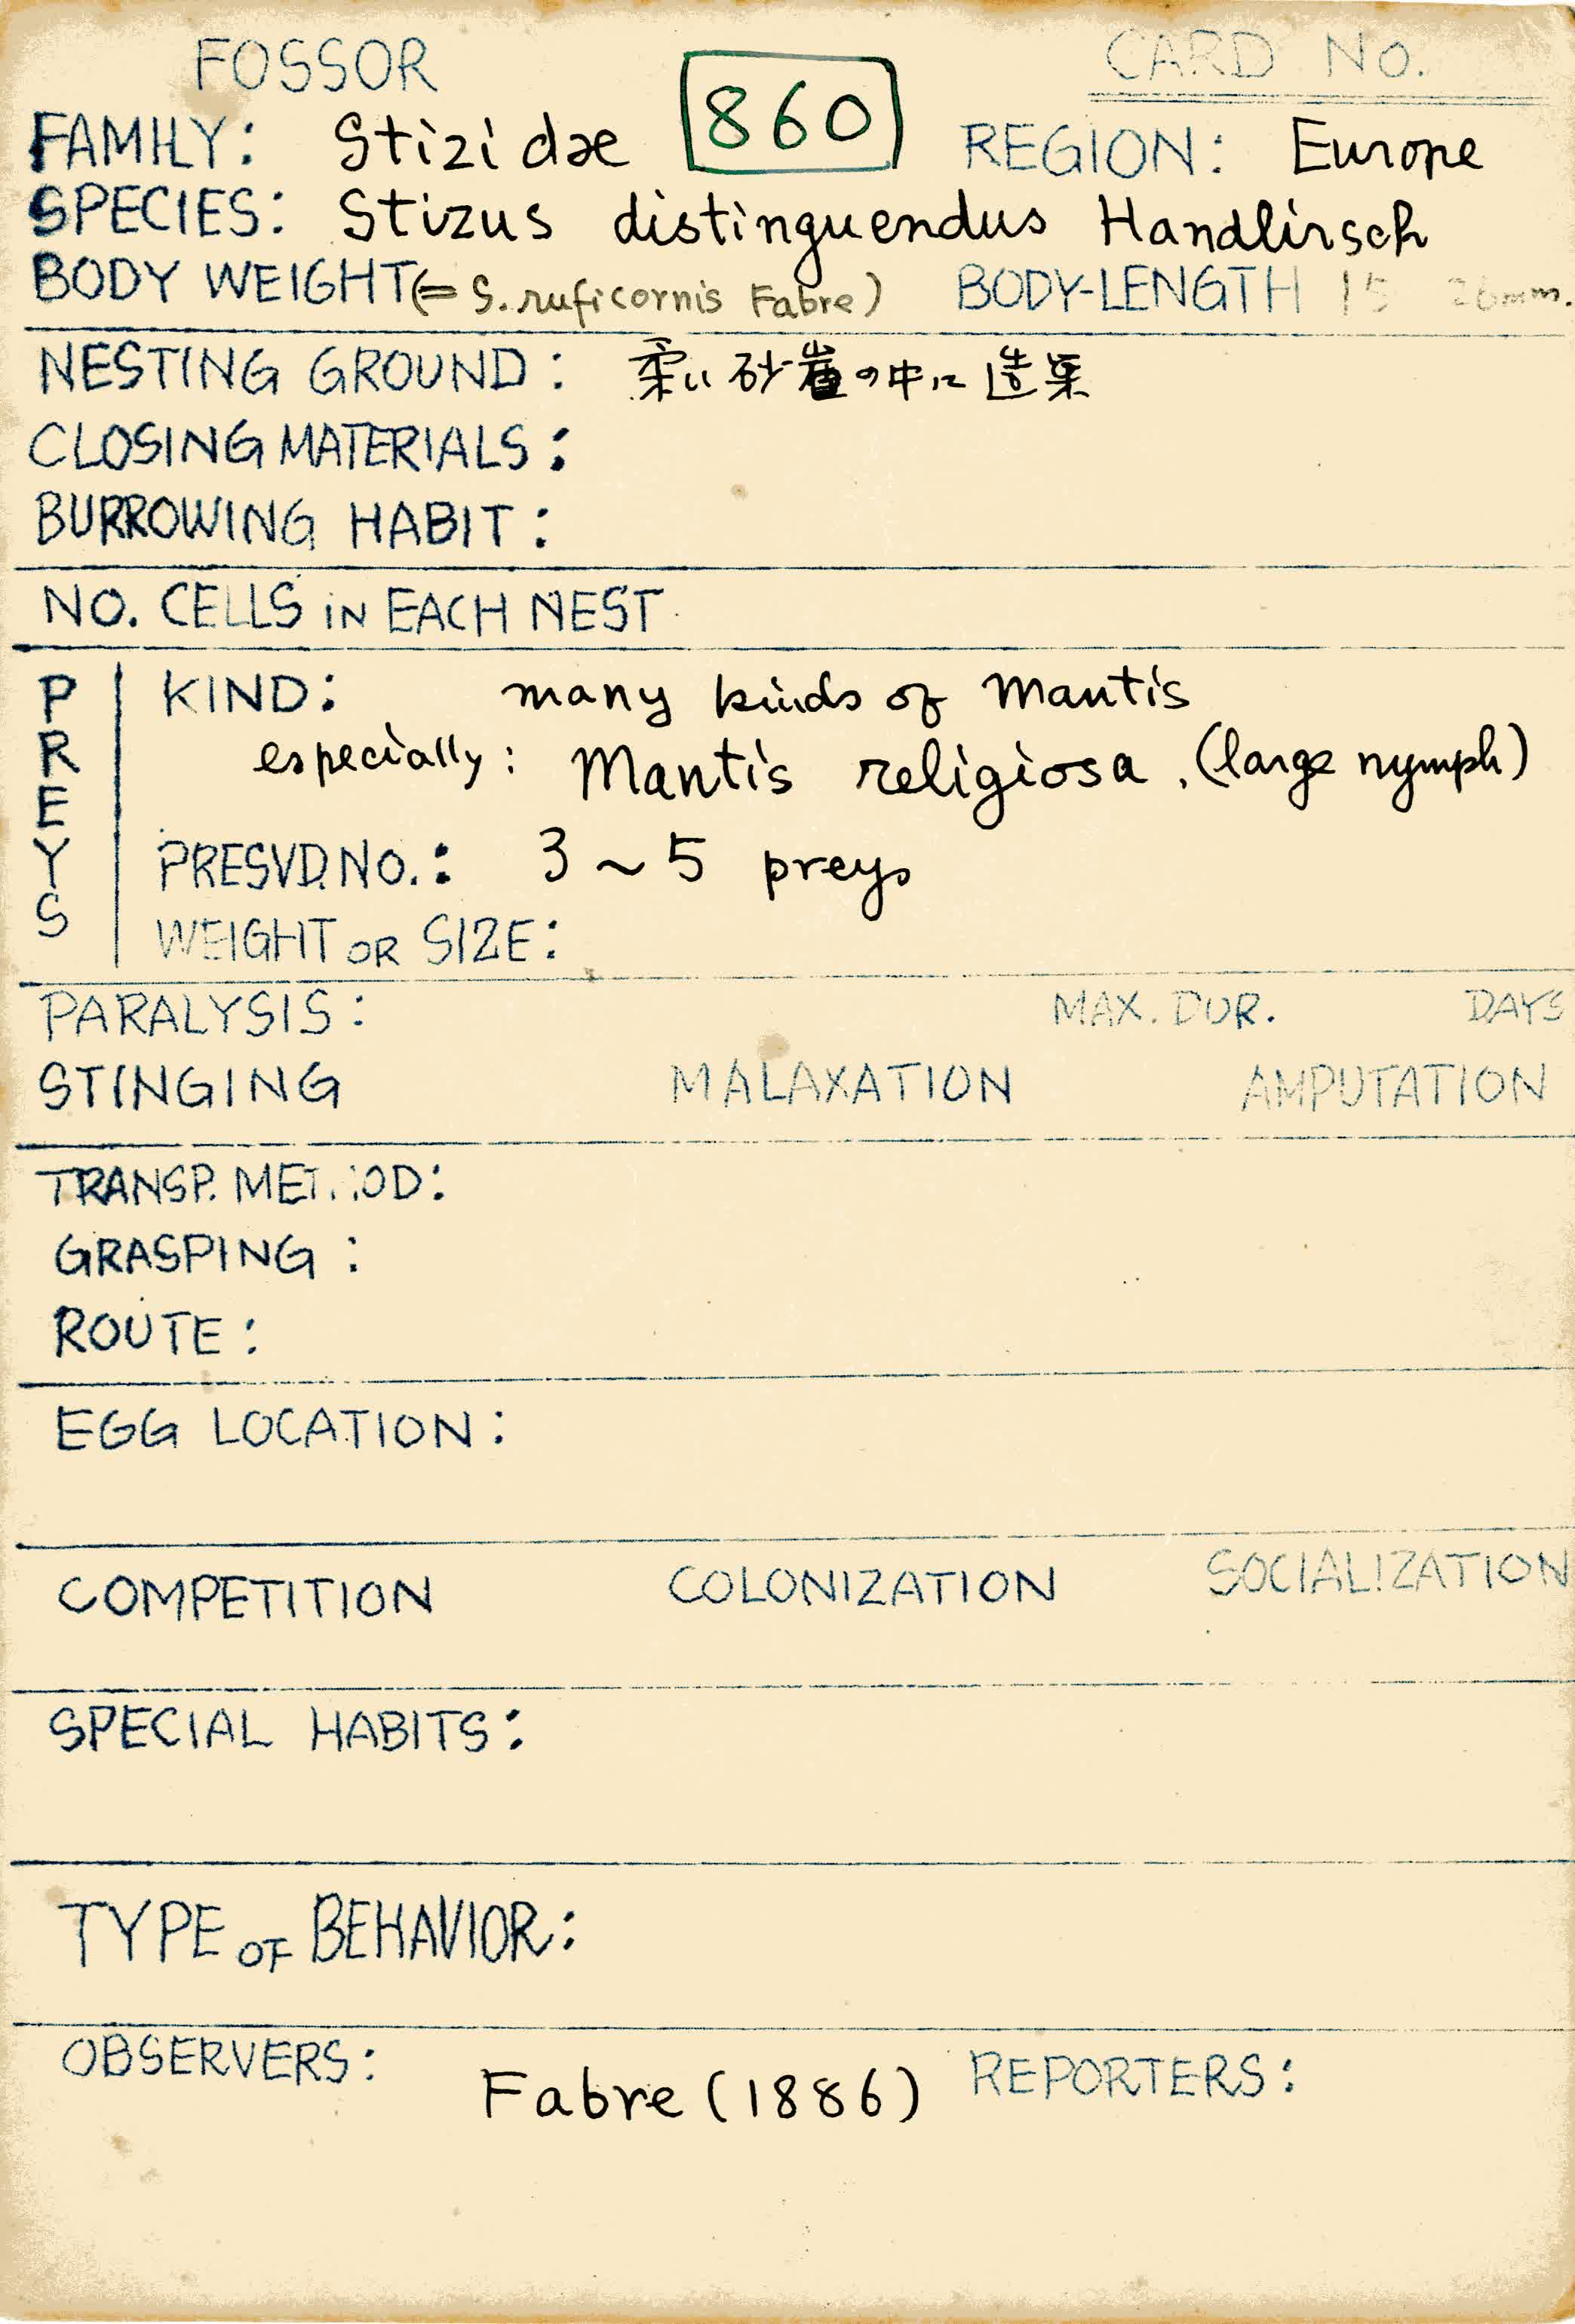 FOSSOR 860 CARD NO.
FAMILY: Stizidae REGION: Europe
SPECIES: Stizus distinguendus Handlirsch
BODY WEIGHT (= S. ruficornis Fabre) BODY-LENGTH 15 26mm.
NESTING GROUND: 柔い砂崖の中に造巣
CLOSING MATERIALS:
BURROWING HABIT:
NO. CELLS IN EACH NEST
PREYS
KIND: many kinds of Mantis
especially: Mantis religiosa. (large nymph)
PRESVD. NO.: 3 ~ 5 preys
WEIGHT OR SIZE:
PARALYSIS: MAX. DUR. DAYS
STINGING MALAXATION AMPUTATION
TRANSP. METHOD:
GRASPING:
ROUTE:
EGG LOCATION:
COMPETITION COLONIZATION SOCIALIZATION
SPECIAL HABITS:
TYPE OF BEHAVIOR:
OBSERVERS: Fabre (1886) REPORTERS: